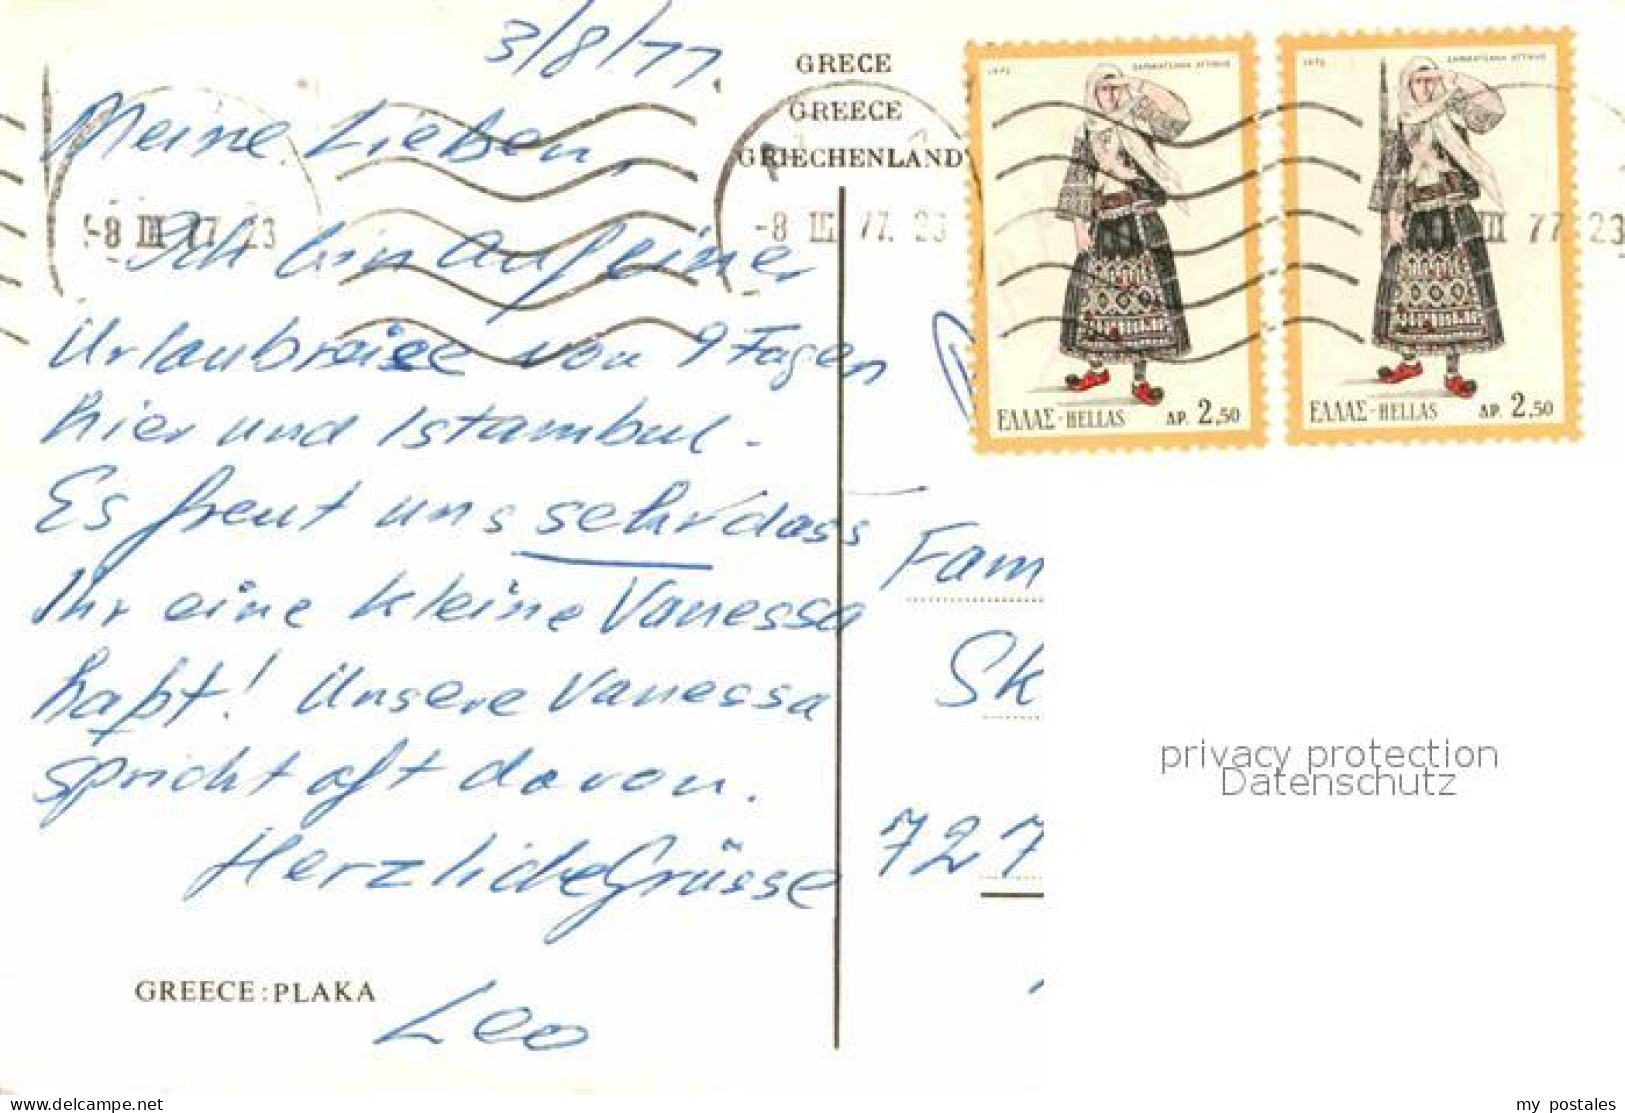 3/8/77.
GRECE
GREECE
GRIECHENLAND
Meine Lieben,
-8 III 77 23
-8 III 77. 23
III 77 23
Ich bin auf einer
Urlaubreise von 9 Tagen
hier und Istambul.
Es freut uns sehr dass
Ihr eine kleine Vanessa
habt! Unsere Vanessa
spricht oft davon.
Herzliche Grüsse
Leo
GREECE: PLAKA
1972 ΣΑΡΑΚΑΤΣΑΝΑ ΑΤΤΙΚΗΣ
ΕΛΛΑΣ-HELLAS ΔΡ. 2,50
1972 ΣΑΡΑΚΑΤΣΑΝΑ ΑΤΤΙΚΗΣ
ΕΛΛΑΣ-HELLAS ΔΡ. 2,50
Fam
Sk
727
privacy protection
Datenschutz
www.delcampe.net
my_postales